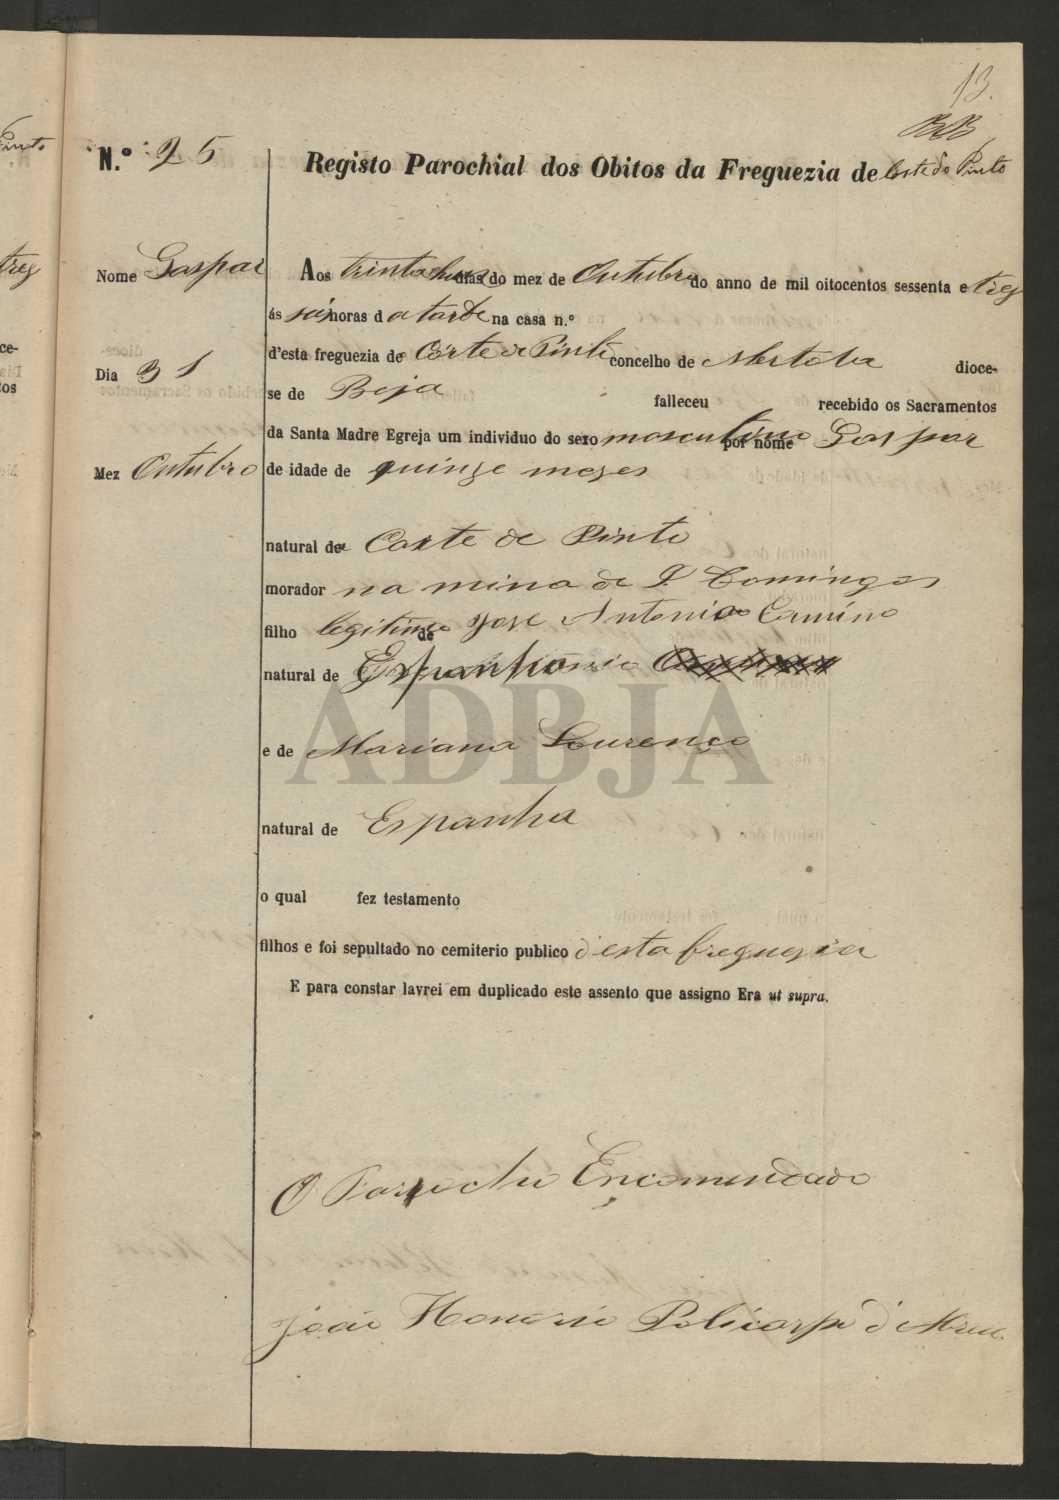 13.
N.º 25
Registo Parochial dos Obitos da Freguezia de Corte do Pinto
Nome Gaspar
Dia 31
Mez Outubro
Aos trinta hum dias do mez de Outubro do anno de mil oitocentos sessenta e tres
ás seis horas da tarde na casa n.º
d'esta freguezia de Corte de Pinto concelho de Mertola dioce-
se de Beja falleceu recebido os Sacramentos
da Santa Madre Egreja um individuo do sexo masculino por nome Gaspar
de idade de quinze mezes
natural de Corte de Pinto
morador na mina de S Domingos
filho legitimo de Jose Antonio Camino
natural de Espanha
e de Mariana Lourenço
natural de Espanha
o qual fez testamento
filhos e foi sepultado no cemiterio publico d'esta freguezia
E para constar lavrei em duplicado este assento que assigno Era ut supra.
O Parrocho Encomendado
João Honorio Policarpo d'Abreu
ADBJA